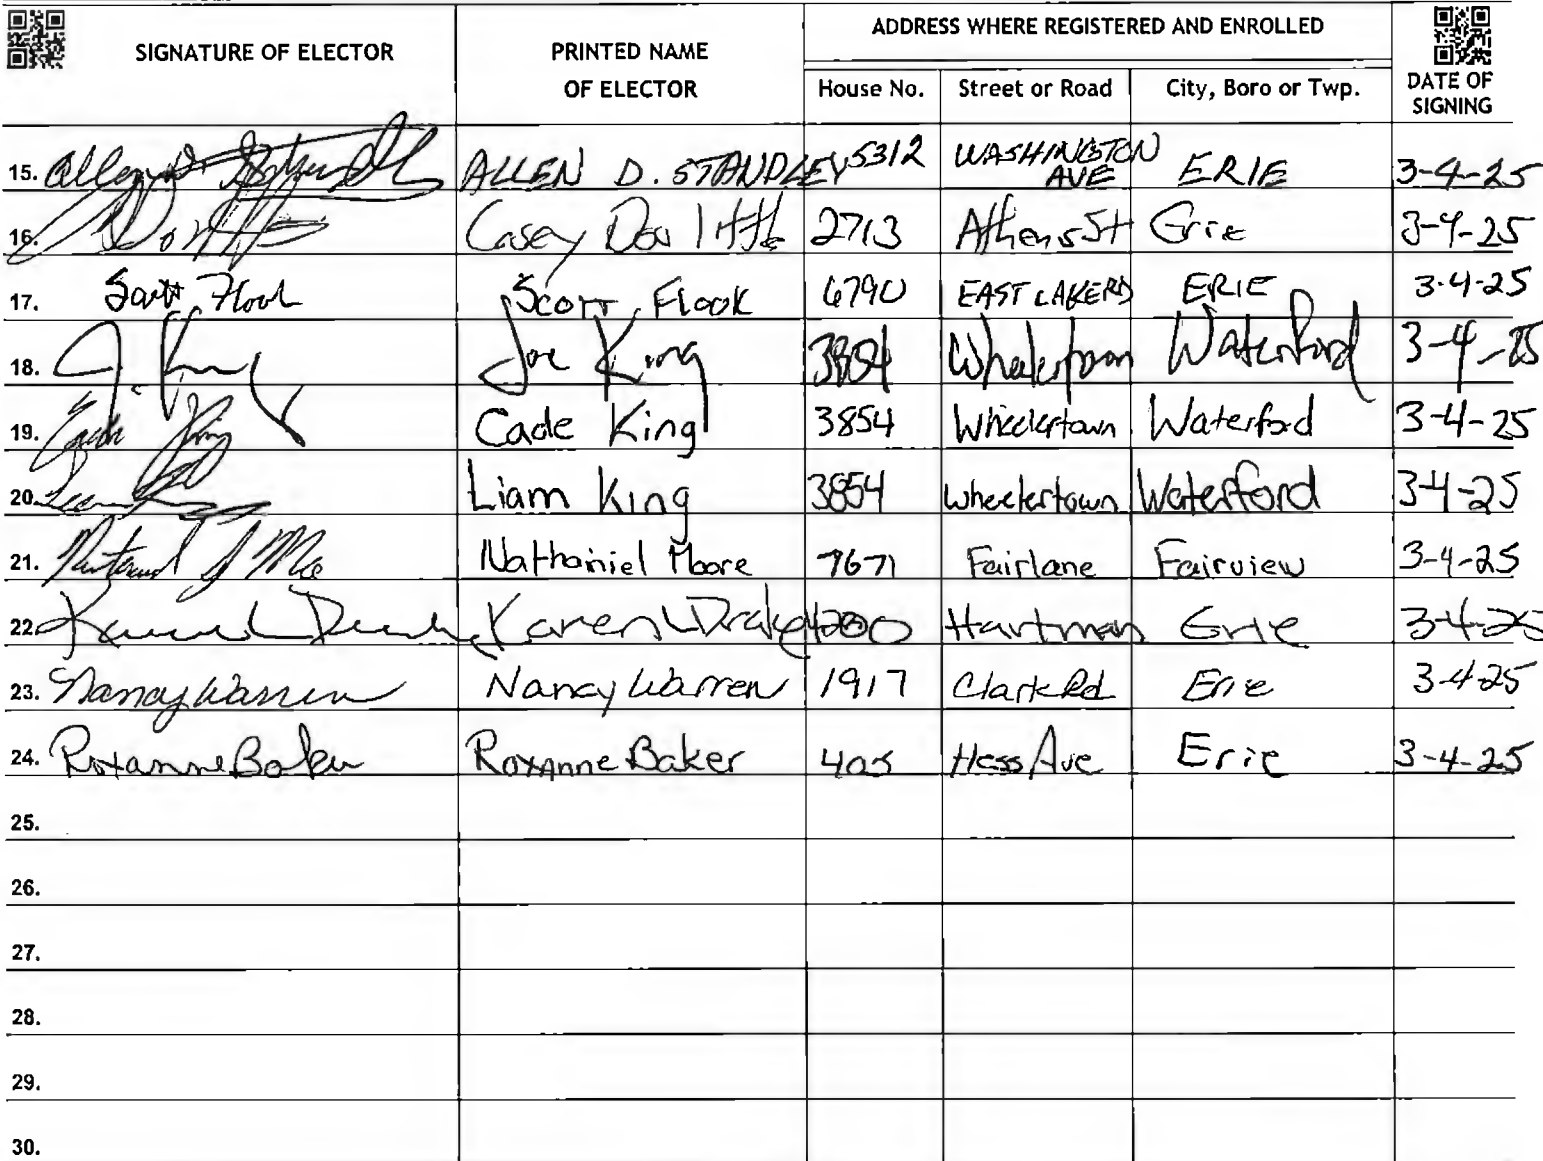 ADDRESS WHERE REGISTERED AND ENROLLED
SIGNATURE OF ELECTOR PRINTED NAME OF ELECTOR House No. Street or Road City, Boro or Twp. DATE OF SIGNING
15. Allen D. ALLEN D. STANDLEY 5312 WASHINGTON AVE ERIE 3-4-25
16. Casey Doolittle 2713 Athens St Erie 3-4-25
17. Scott Flook Scott Flook 6790 EAST LAKE RD ERIE 3-4-25
18. J. King Joe King 3854 Wheelertown Waterford 3-4-25
19. Cade King Cade King 3854 Wheelertown Waterford 3-4-25
20. Liam Liam King 3854 Wheelertown Waterford 3-4-25
21. Nathaniel Moore 7671 Fairlane Fairview 3-4-25
22. Karen L Drake Karen L Drake 4200 Hartman Erie 3-4-25
23. Nancy Warren Nancy Warren 1917 Clark Rd Erie 3-4-25
24. Roxanne Baker Roxanne Baker 405 Hess Ave Erie 3-4-25
25.
26.
27.
28.
29.
30.